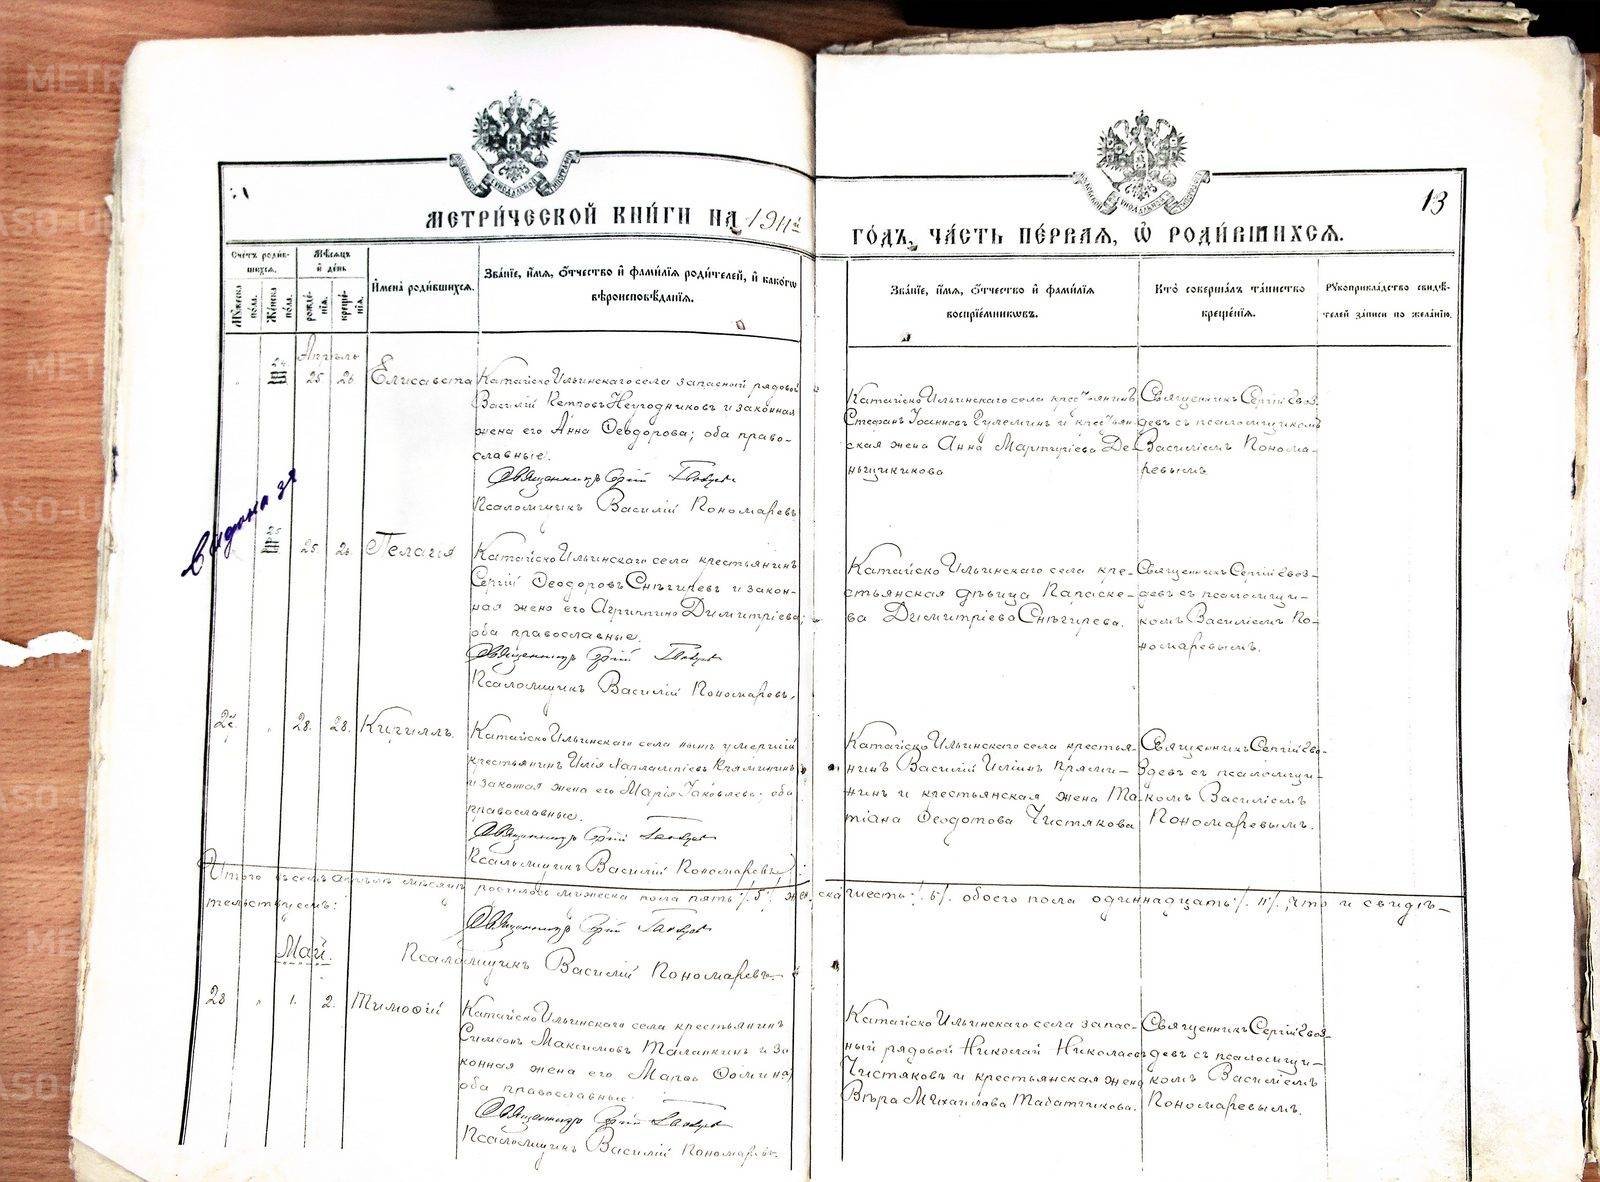 МЕТРИ́ЧЕСКОЙ КНИ́ГИ НА 1911й ГО́ДЪ, ЧА́СТЬ ПЕ́РВАЯ, Ѡ РОДИ́ВШИХСЯ.
13
Сче́тъ роди́в-
шихся.
Му́жеска по́ла.
Же́нска по́ла.
Мѣ́сяцъ и де́нь
рожде́нія.
креще́нія.
И́мена роди́вшихся.
Зва́ніе, и́мя, о́тчество и фами́лія роди́телей, и како́гѡ
вѣроисповѣ́данія.
Зва́ніе, и́мя, о́тчество и фами́лія
воспріе́мникѡвъ.
Кто̀ соверша́лъ та́инство
креще́нія.
Рꙋкоприкла́дство свидѣ́-
телей за́писи по жела́нію.
Апрѣль
24 25 26 Елисавета
Катайско Ильинскаго села запасный рядовой
Василій Петровъ и законная
жена его Анна Ѳеодорова; оба право-
славные.
Священникъ Сергій Гвоздевъ
Псаломщикъ Василій Пономаревъ
Катайско Ильинскаго села крестьянинъ
Стефанъ Іоанновъ и крестьян-
ская жена Анна
Священникъ Сергій Гвоз-
девъ съ псаломщикомъ
Василіемъ Понома-
ревымъ
25 25 26 Пелагія
Катайско Ильинскаго села крестьянинъ
Сергій Ѳеодоровъ Снѣгиревъ и закон-
ная жена его Агриппина Димитріева;
оба православные.
Священникъ Сергій Гвоздевъ
Псаломщикъ Василій Пономаревъ.
Катайско Ильинскаго села кре-
стьянская дѣвица Параске-
ва Димитріева Снѣгирева.
Священникъ Сергій Гвоз-
девъ съ псаломщи-
комъ Василіемъ По-
номаревымъ.
28. 28. Кириллъ.
Катайско Ильинскаго села нынѣ умершій
крестьянинъ Илія Прямининъ
и законная жена его Марія Іаковлева; оба
православные.
Священникъ Сергій Гвоздевъ
Псаломщикъ Василій Пономаревъ
Катайско Ильинскаго села крестья-
нинъ Василій Иліинъ Прями-
нинъ и крестьянская жена Та-
тіана Ѳеодотова Чистякова
Священникъ Сергій Гво-
здевъ съ псаломщи-
комъ Василіемъ
Пономаревымъ.
Итого въ семъ апрѣлѣ мѣсяцѣ родилось мужеска пола пять /5/ женска шесть /6/. обоего пола одиннадцать /11/, что и свидѣ-
тельствуемъ:
Священникъ Сергій Гвоздевъ
Псаломщикъ Василій Пономаревъ
Май.
28 1. 2. Тимоѳій
Катайско Ильинскаго села крестьянинъ
Симеонъ Максимовъ Талапкинъ и за-
конная жена его Марѳа Ѳомина;
оба православные.
Священникъ Сергій Гвоздевъ
Псаломщикъ Василій Пономаревъ.
Катайско Ильинскаго села запас-
ный рядовой Николай Николаевъ
Чистяковъ и крестьянская жена
Вѣра Михайлова Табатчикова.
Священникъ Сергій Гвоз-
девъ съ псаломщи-
комъ Василіемъ
Пономаревымъ.